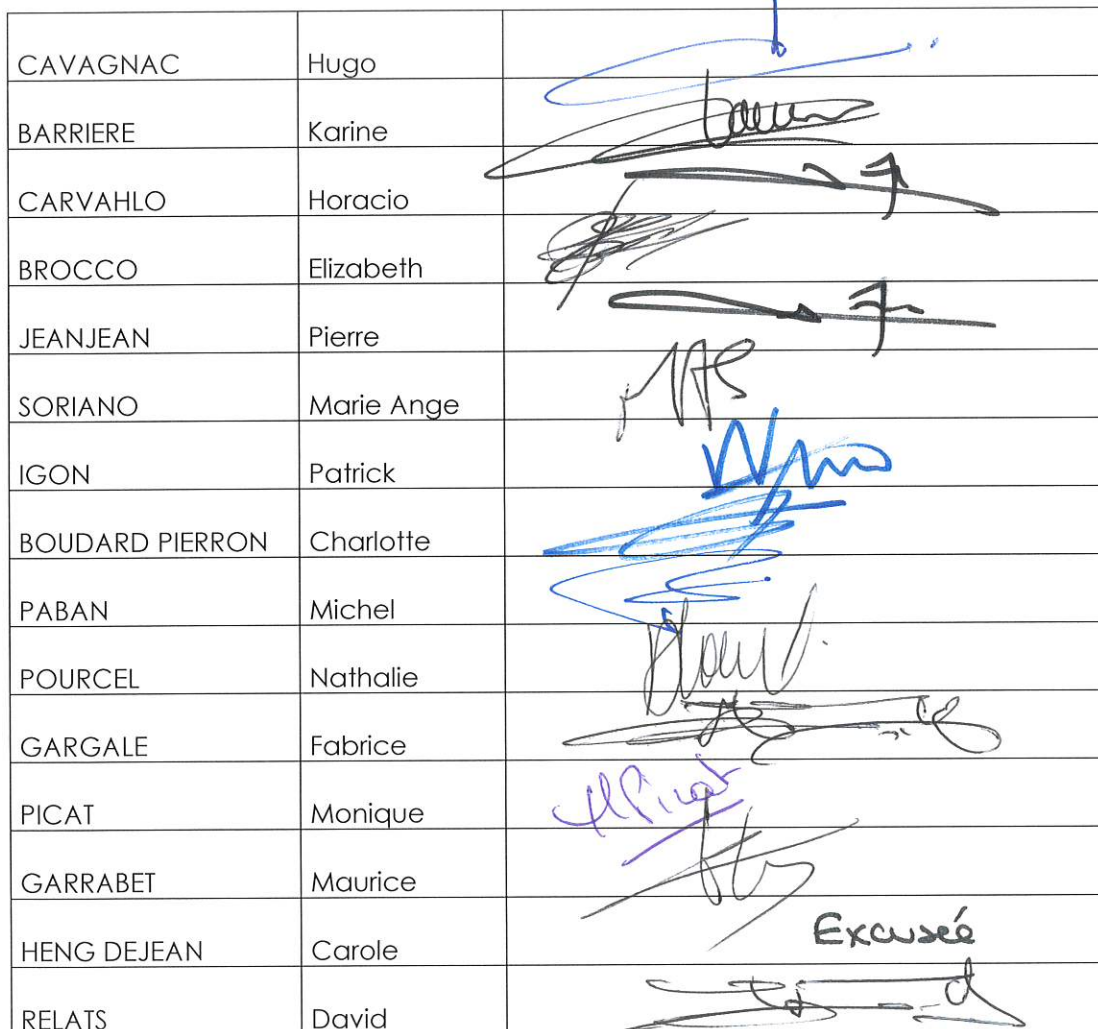 CAVAGNAC Hugo
BARRIERE Karine
CARVAHLO Horacio
BROCCO Elizabeth
JEANJEAN Pierre
SORIANO Marie Ange MAS
IGON Patrick
BOUDARD PIERRON Charlotte
PABAN Michel
POURCEL Nathalie
GARGALE Fabrice
PICAT Monique MPicat
GARRABET Maurice
HENG DEJEAN Carole Excusée
RELATS David